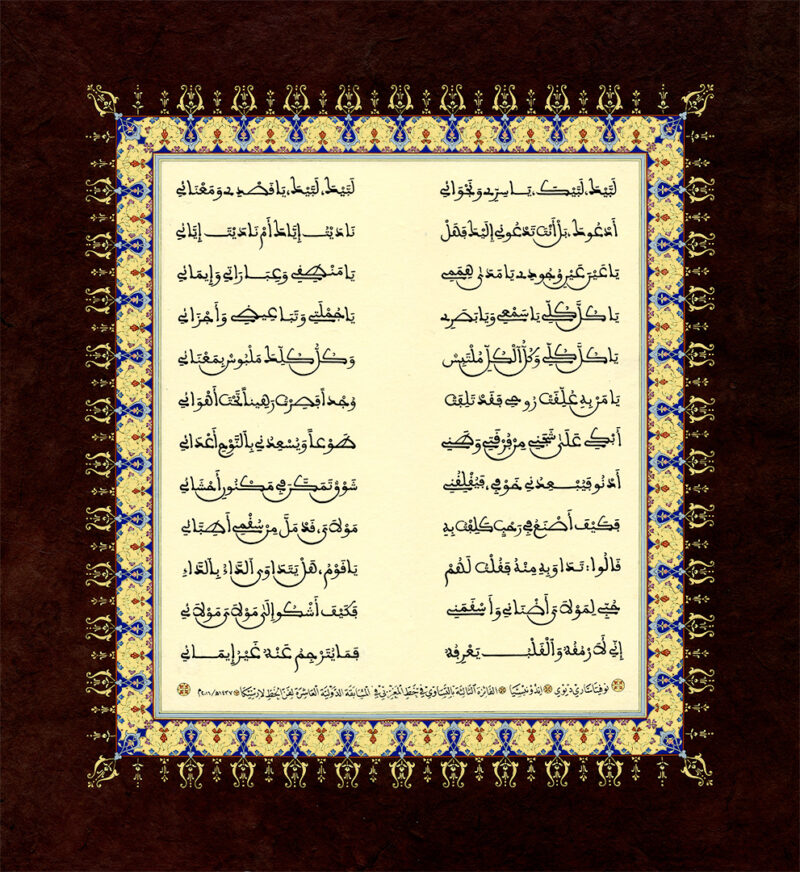 لَبَّيْكَ، لَبَّيْكَ، يَا سِرِّي وَنَجْوَائِي لَبَّيْكَ، لَبَّيْكَ، يَا قَصْدِي وَمَعْنَائِي
أَدْعُوكَ، بَلْ أَنْتَ تَدْعُونِي إِلَيْكَ فَهَلْ نَادَيْتُ إِيَّاكَ أَمْ نَادَيْتَ إِيَّائِي
يَا عَيْنَ عَيْنِ وُجُودِي يَا مَدَى هِمَمِي يَا مَنْطِقِي وَعِبَارَاتِي وَإِيمَائِي
يَا كُلَّ كُلِّي يَا سَمْعِي وَيَا بَصَرِي يَا جُمْلَتِي وَتَبَاعِيضِي وَأَجْزَائِي
يَا كُلَّ كُلِّي وَكُلُّ الْكُلِّ مُلْتَبِسٌ وَكُلُّ كُلِّكَ مَلْبُوسٌ بِمَعْنَائِي
يَا مَنْ بِهِ عَلِقَتْ رُوحِي فَقَدْ تَلِفَتْ وَجْداً فَصِرْتُ رَهِيناً تَحْتَ أَهْوَائِي
أَبْكِي عَلَى شَجَنِي مِنْ فُرْقَتِي وَطَنِي طَوْعاً وَيُسْعِدُنِي بِالنَّوْحِ أَعْدَائِي
أَدْنُو فَيُبْعِدُنِي خَوْفِي، فَيُقْلِقُنِي شَوْقٌ تَمَكَّنَ فِي مَكْنُونِ أَحْشَائِي
فَكَيْفَ أَصْنَعُ فِي حُبٍّ كَلِفْتُ بِهِ مَوْلَايَ، قَدْ مَلَّ مِنْ سُقْمِي أَطِبَّائِي
قَالُوا: تَدَاوَ بِهِ مِنْهُ فَقُلْتُ لَهُمْ يَا قَوْمُ، هَلْ يَتَدَاوَى الدَّاءُ بِالدَّاءِ
حُبِّي لِمَوْلَايَ أَضْنَانِي وَأَسْقَمَنِي فَكَيْفَ أَشْكُو إِلَى مَوْلَايَ مَوْلَائِي
إِنِّي لَأَرْمُقُهُ وَالْقَلْبُ يَعْرِفُهُ فَمَا يُتَرْجِمُ عَنْهُ غَيْرُ إِيمَائِي
نوفيتاساري ديوي إندونيسيا الفائزة الثالثة بالتساوي في خط المغربي في المسابقة الدولية العاشرة لفن الخط لإرسيكا ١٤٣٧هـ/٢٠١٦م